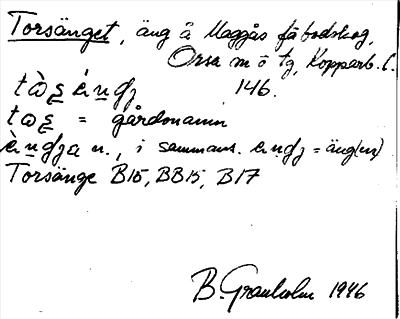 Torsänget, äng å Maggås fäbodskog,
Orsa m ö tg, Kopparb. l.
146.
= gårdsnamn
n., i sammans. = äng(en)
Torsänge B15, BB15, B17
B. Granholm 1946